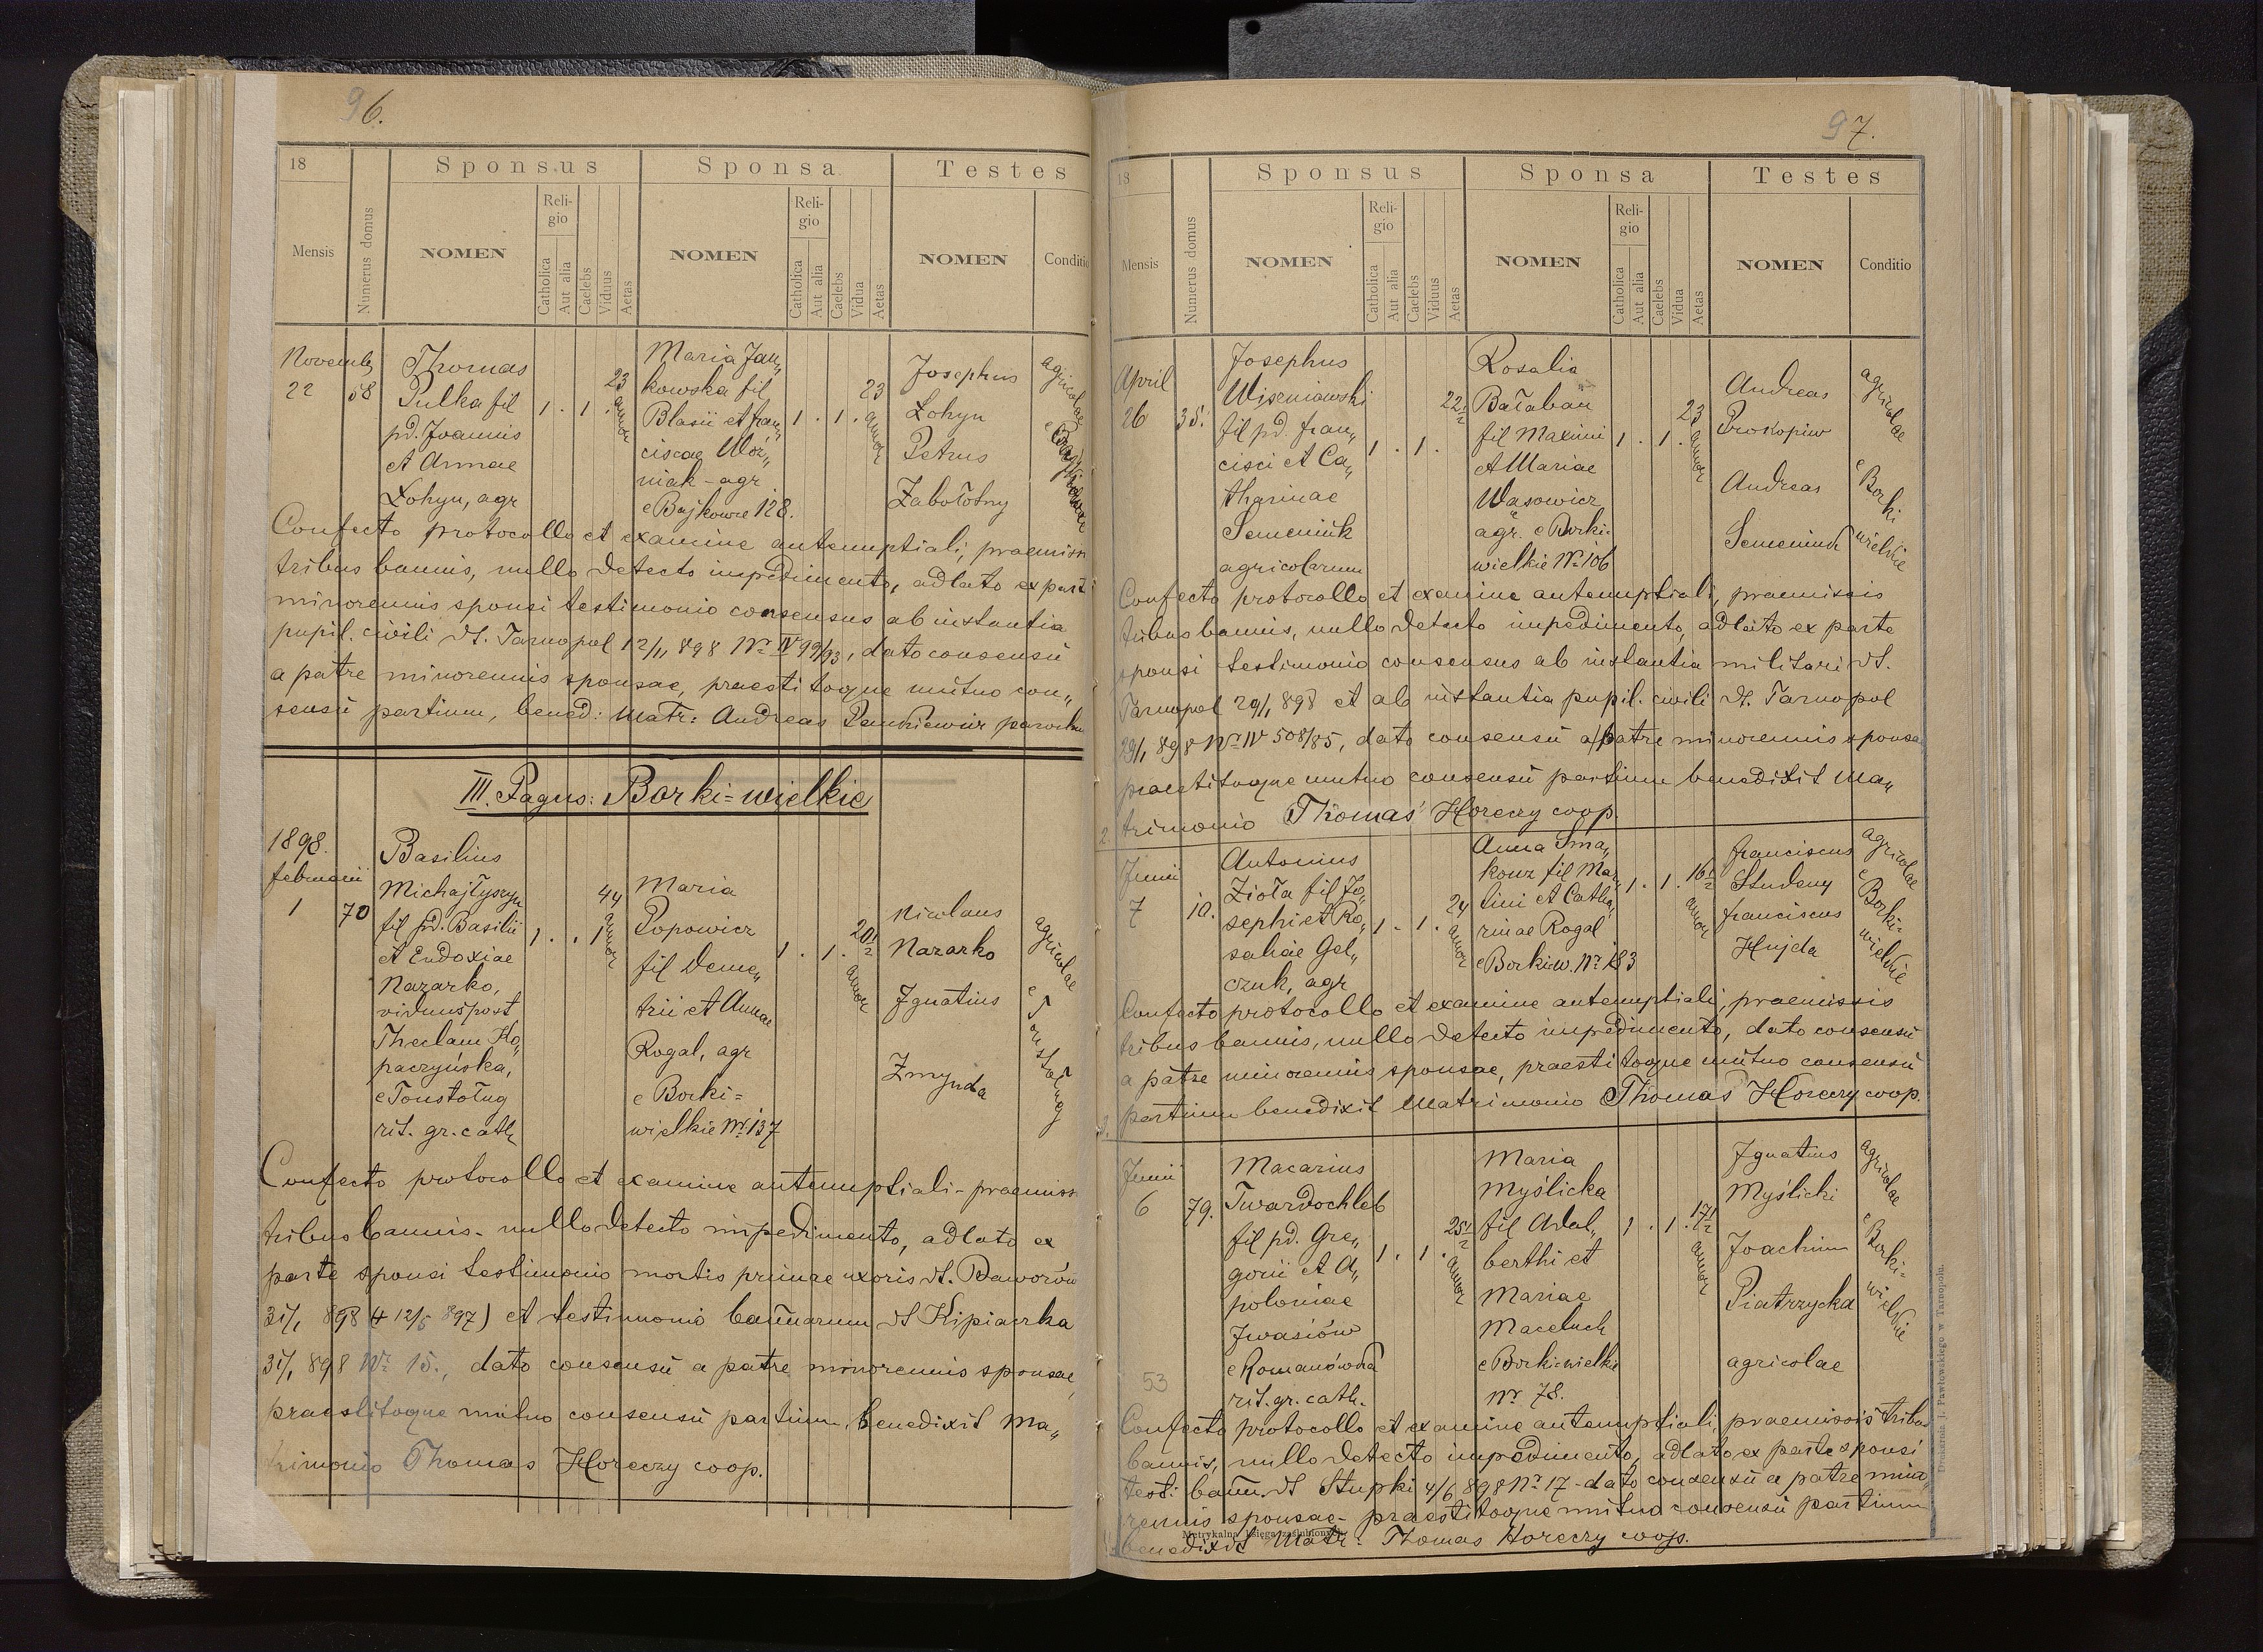 96.
18
Sponsus
Sponsa
Testes
Mensis
Numerus domus
NOMEN
Religio
Catholica
Aut alia
Caelebs
Viduus
Aetas
NOMEN
Religio
Catholica
Aut alia
Caelebs
Vidua
Aetas
NOMEN
Conditio
Novemb
22
58
Thomas
Pulka fil
pd. Joannis
et Annae
Łohyn, agr
1 . 1 .
23
annor
Maria Jan„
kowska fil
Blasii et fran„
ciscae Woź„
niak - agr
e Bajkowce 128.
1 . 1 .
23
annor
Josephus
Łohyn
Petrus
Zabołotny
agricolae
Confecto protocollo et examine antenuptiali, praemissis
tribus bannis, nullo detecto impedimento, adlato ex parte
minorennis sponsi testimonio consensus ab instantia
pupil. civili dt. Tarnopol 12/11 898 Nr IV 99/93, dato consensu
a patre minorennis sponsae, praestitoque mutuo con„
sensu partium, bened: Matr: Andreas parochus
III. Pagus: Borki-wielkie
1898.
februarii
1
70
Basilius
Michajłyszyn
fil pd. Basilii
et Eudoxiae
Nazarko,
viduus post
Theclam Ko„
paczyńska,
e Toustoług
rit. gr. cath
1 . . 1
44
annor
Maria
Popowicz
fil Deme„
trii et Annae
Rogal, agr
e Borki=
wielkie Nr 137
1 . 1 .
20½
annor
Nicolaus
Nazarko
Ignatius
Zmynda
agricolae
e Toustoług
Confecto protocollo et examine antenuptiali - praemissis
tribus bannis - nullo detecto impedimento, adlato ex
parte sponsi testimonio mortis primae uxoris dt. Baworów
31/1 898 (+ 12/5 897) et testimonio bannorum dt
31/1 898 Nr 15., dato consensu a patre minorennis sponsae,
praestitoque mutuo consensu partium benedixit Ma„
trimonio Thomas Horeczy coop.
97.
18
Sponsus
Sponsa
Testes
Mensis
Numerus domus
NOMEN
Religio
Catholica
Aut alia
Caelebs
Viduus
Aetas
NOMEN
Religio
Catholica
Aut alia
Caelebs
Vidua
Aetas
NOMEN
Conditio
April
26
35.
Josephus
Wiszniowski
fil pd. fran„
cisci et Ca„
tharinae
Semeniuk
agricolarum
1 . 1 .
22½
Rosalia
Bałaban
fil Maximi
et Mariae
Wąsowicz
agr. e Borki-
wielkie Nr 106
1 . 1 .
23
annor
Andreas
Prokopiw
Andreas
Semeniuk
agricolae
e Borki
wielkie
Confecto protocollo et examine antenuptiali, praemissis
tribus bannis, nullo detecto impedimento, adlato ex parte
sponsi testimonio consensus ab instantia militari dt.
Tarnopol 29/1 898 et ab instantia pupil. civili dt. Tarnopol
29/1 898 Nr IV 508/85, dato consensu a patre minorennis sponsae
praestitoque mutuo consensu partium benedixit Ma„
trimonio Thomas Horeczy coop.
2.
Junii
7
10.
Antonius
Zioła fil Jo„
sephi et Ro„
saliae Gel„
czuk, agr
1 . 1 .
24
annor
Anna Sma„
kouz fil Mar„
tini et Catha„
rinae Rogal
e Borki w. Nr 183
1 . 1 .
16½
annor
franciscus
Studeny
franciscus
Hujda
agricolae
e Borki-
wielkie
Confecto protocollo et examine antenuptiali, praemissis
tribus bannis, nullo detecto impedimento, dato consensu
a patre minorennis sponsae, praestitoque mutuo consensu
partium benedixit Matrimonio Thomas Horeczy coop.
3.
Junii
6
79.
Macarius
Twardochleb
fil pd. Gre„
gorii et A„
poloniae
Iwasiów
e Romanówka
rit. gr. cath.
1 . 1 .
25½
annor
Maria
Myślicka
fil Adal„
berthi et
Mariae
Maceluch
e Borki-wielkie
nr 78.
1 . 1 .
17½
annor
Ignatius
Myślicki
Joachim
Piatrzycka
agricolae
agricolae
e Borki-
wielkie
53
Confecto protocollo et examine antenuptiali, praemissis tribus
bannis, nullo detecto impedimento, adlato ex parte sponsi
test: bann. dt Stupki 4/6 898 Nr 17 - dato consensu a patre mino„
rennis sponsae - praestitoque mutuo consensu partium
benedixit Matr: Thomas Horeczy coop.
Metrykalna księga zaślubionych.
Drukarnia J. Pawłowskiego w Tarnopolu.